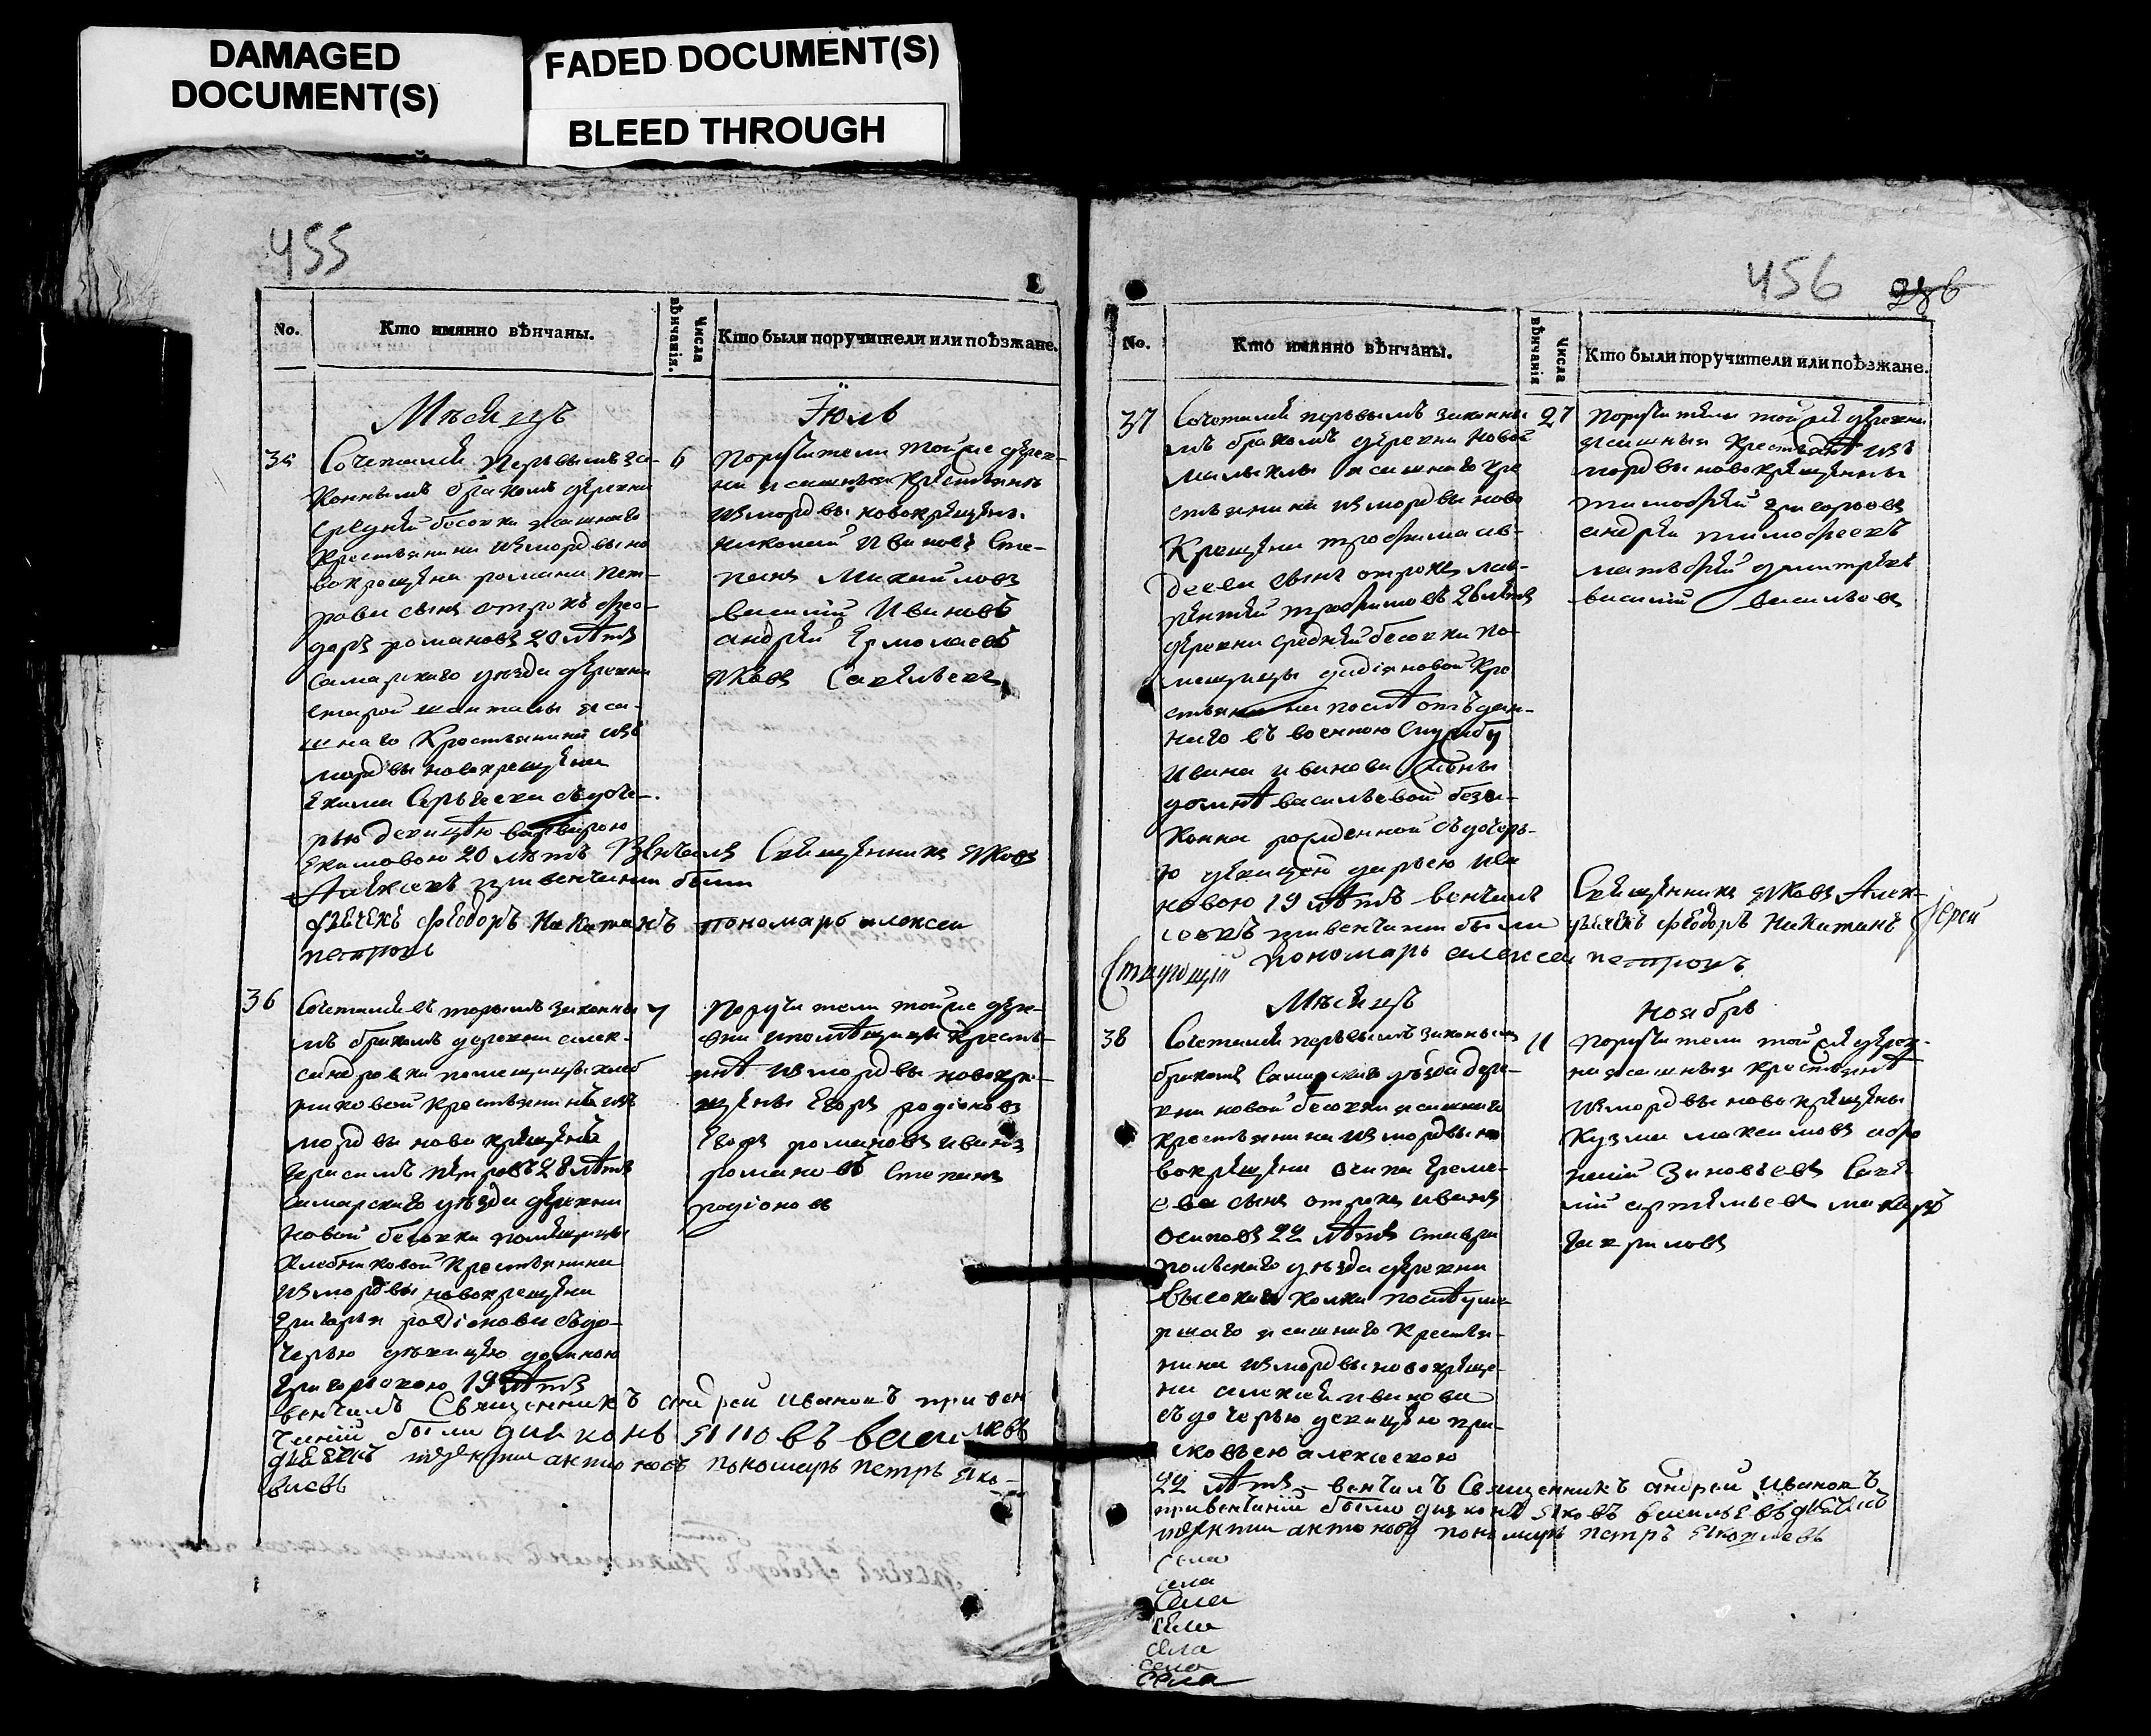 DAMAGED
DOCUMENT(S)
FADED DOCUMENT(S)
BLEED THROUGH
455
No.
Кто имянно вѣнчаны.
Числа вѣнчанія.
Кто были поручители или поѣзжане.
Мѣсяцъ
Июль
35
Сочетался первымъ за-
коннымъ бракомъ деревни
Средней бесовки ясашнаго
Крестьянина изъ мордвы но
вокрещена романа пет-
рова сынъ отрокъ фео-
доръ романовъ 20 лѣтъ
самарскаго уѣзда деревни
старой шанталы яса-
шнаго Крестьянина изъ
мордвы новокрещена
Екима Сергѣева съ доче-
рью девицею варварою
екимовою 20 лѣтъ Вѣнчалъ Священникъ яковъ
Алексѣевъ при венчании были
дьячекъ феодоръ Никитинъ пономарь алексеи
петровъ
6
поручители тойже дерев-
ни ясашныя крестьянъ
изъ мордвы новокрещены
николай Ивановъ Сте-
панъ Михайловъ
василий Ивановъ
андрей Ермолаевъ
яковъ Савельевъ
36
Сочетался вторымъ законны
мъ бракомъ деревни алек-
сандровки помещицы хлеб
никовой крестьянинъ изъ
мордвы новокрещенъ
герасимъ петровъ 28 лѣтъ
самарскаго уѣзда деревни
новой бесовки помещицы
хлебниковой Крестьянина
изъ мордвы новокрещена
григорья родіонова съ до-
черью дѣвицею домною
григорьевою 19 лѣтъ
венчалъ Священникъ андреи Ивановъ при вен
чаніи были диаконъ яковъ васильевъ
дьячекъ антоновъ пономарь петръ яко-
влевъ
7
Поручители тойже дере-
вни помѣщицы крестья-
нѣ изъ мордвы новокре-
щены Егоръ родіоновъ
Егоръ романовъ иванъ
романовъ Степанъ
родіоновъ
456
No.
Кто имянно вѣнчаны.
Числа вѣнчанія
Кто были поручители или поѣзжане.
37
Сочетался первымъ законны
мъ бракомъ деревни новой
малыклы ясашнаго кре
стьянина изъ мордвы ново
крещена трофима ав-
деева сынъ отрокъ лав-
рентий трофимовъ 26 лѣтъ
деревни средней бесовки по-
мещицы дадіановой кре
стьянина послѣ отъдан-
наго въ военною службу
ивана иванова жены
домны васильевой беза-
конна рожденной съ дочерь-
ю девицею дарьею ива
новою 19 лѣтъ венчалъ Священникъ яковъ Алек-
сеевъ при венчании были дьячекъ феодоръ Никитинъ
пономарь алексеи петровъ
27
поручители тойже деревни
ясашныя крестьянѣ изъ
мордвы новокрещены
тимофей григорьевъ
андрей тимофеевъ
матвей дмитриевъ
василий васильевъ
Мѣсяцъ
Ноябрь
38
Сочетался первымъ законнымъ
бракомъ Самарскаго уѣзда дере-
вни новой бесовки ясашнаго
крестьянина изъ мордвы но
вокрещена осипа ереме-
ева сынъ отрокъ иванъ
осиповъ 22 лѣтъ ставро
польскаго уѣзда деревни
высокаго колка послѣ уме
ршаго ясашнаго крестья-
нина изъ мордвы новокреще-
на алексея иванова
съ дочерью девицею пра-
сковьею алексеевою
22 лѣтъ венчалъ Священникъ андреи Ивановъ
при венчаніи были диаконъ яковъ васильевъ дьячекъ
антоновъ пономарь петръ яковлевъ
11
поручители тойже дерев-
ни ясашныя крестьянѣ
изъ мордвы новокрещены
кузма максимовъ афо
насий Зиновьевъ
артемьевъ макаръ
гавриловъ
села
села
села
села
села
села
села